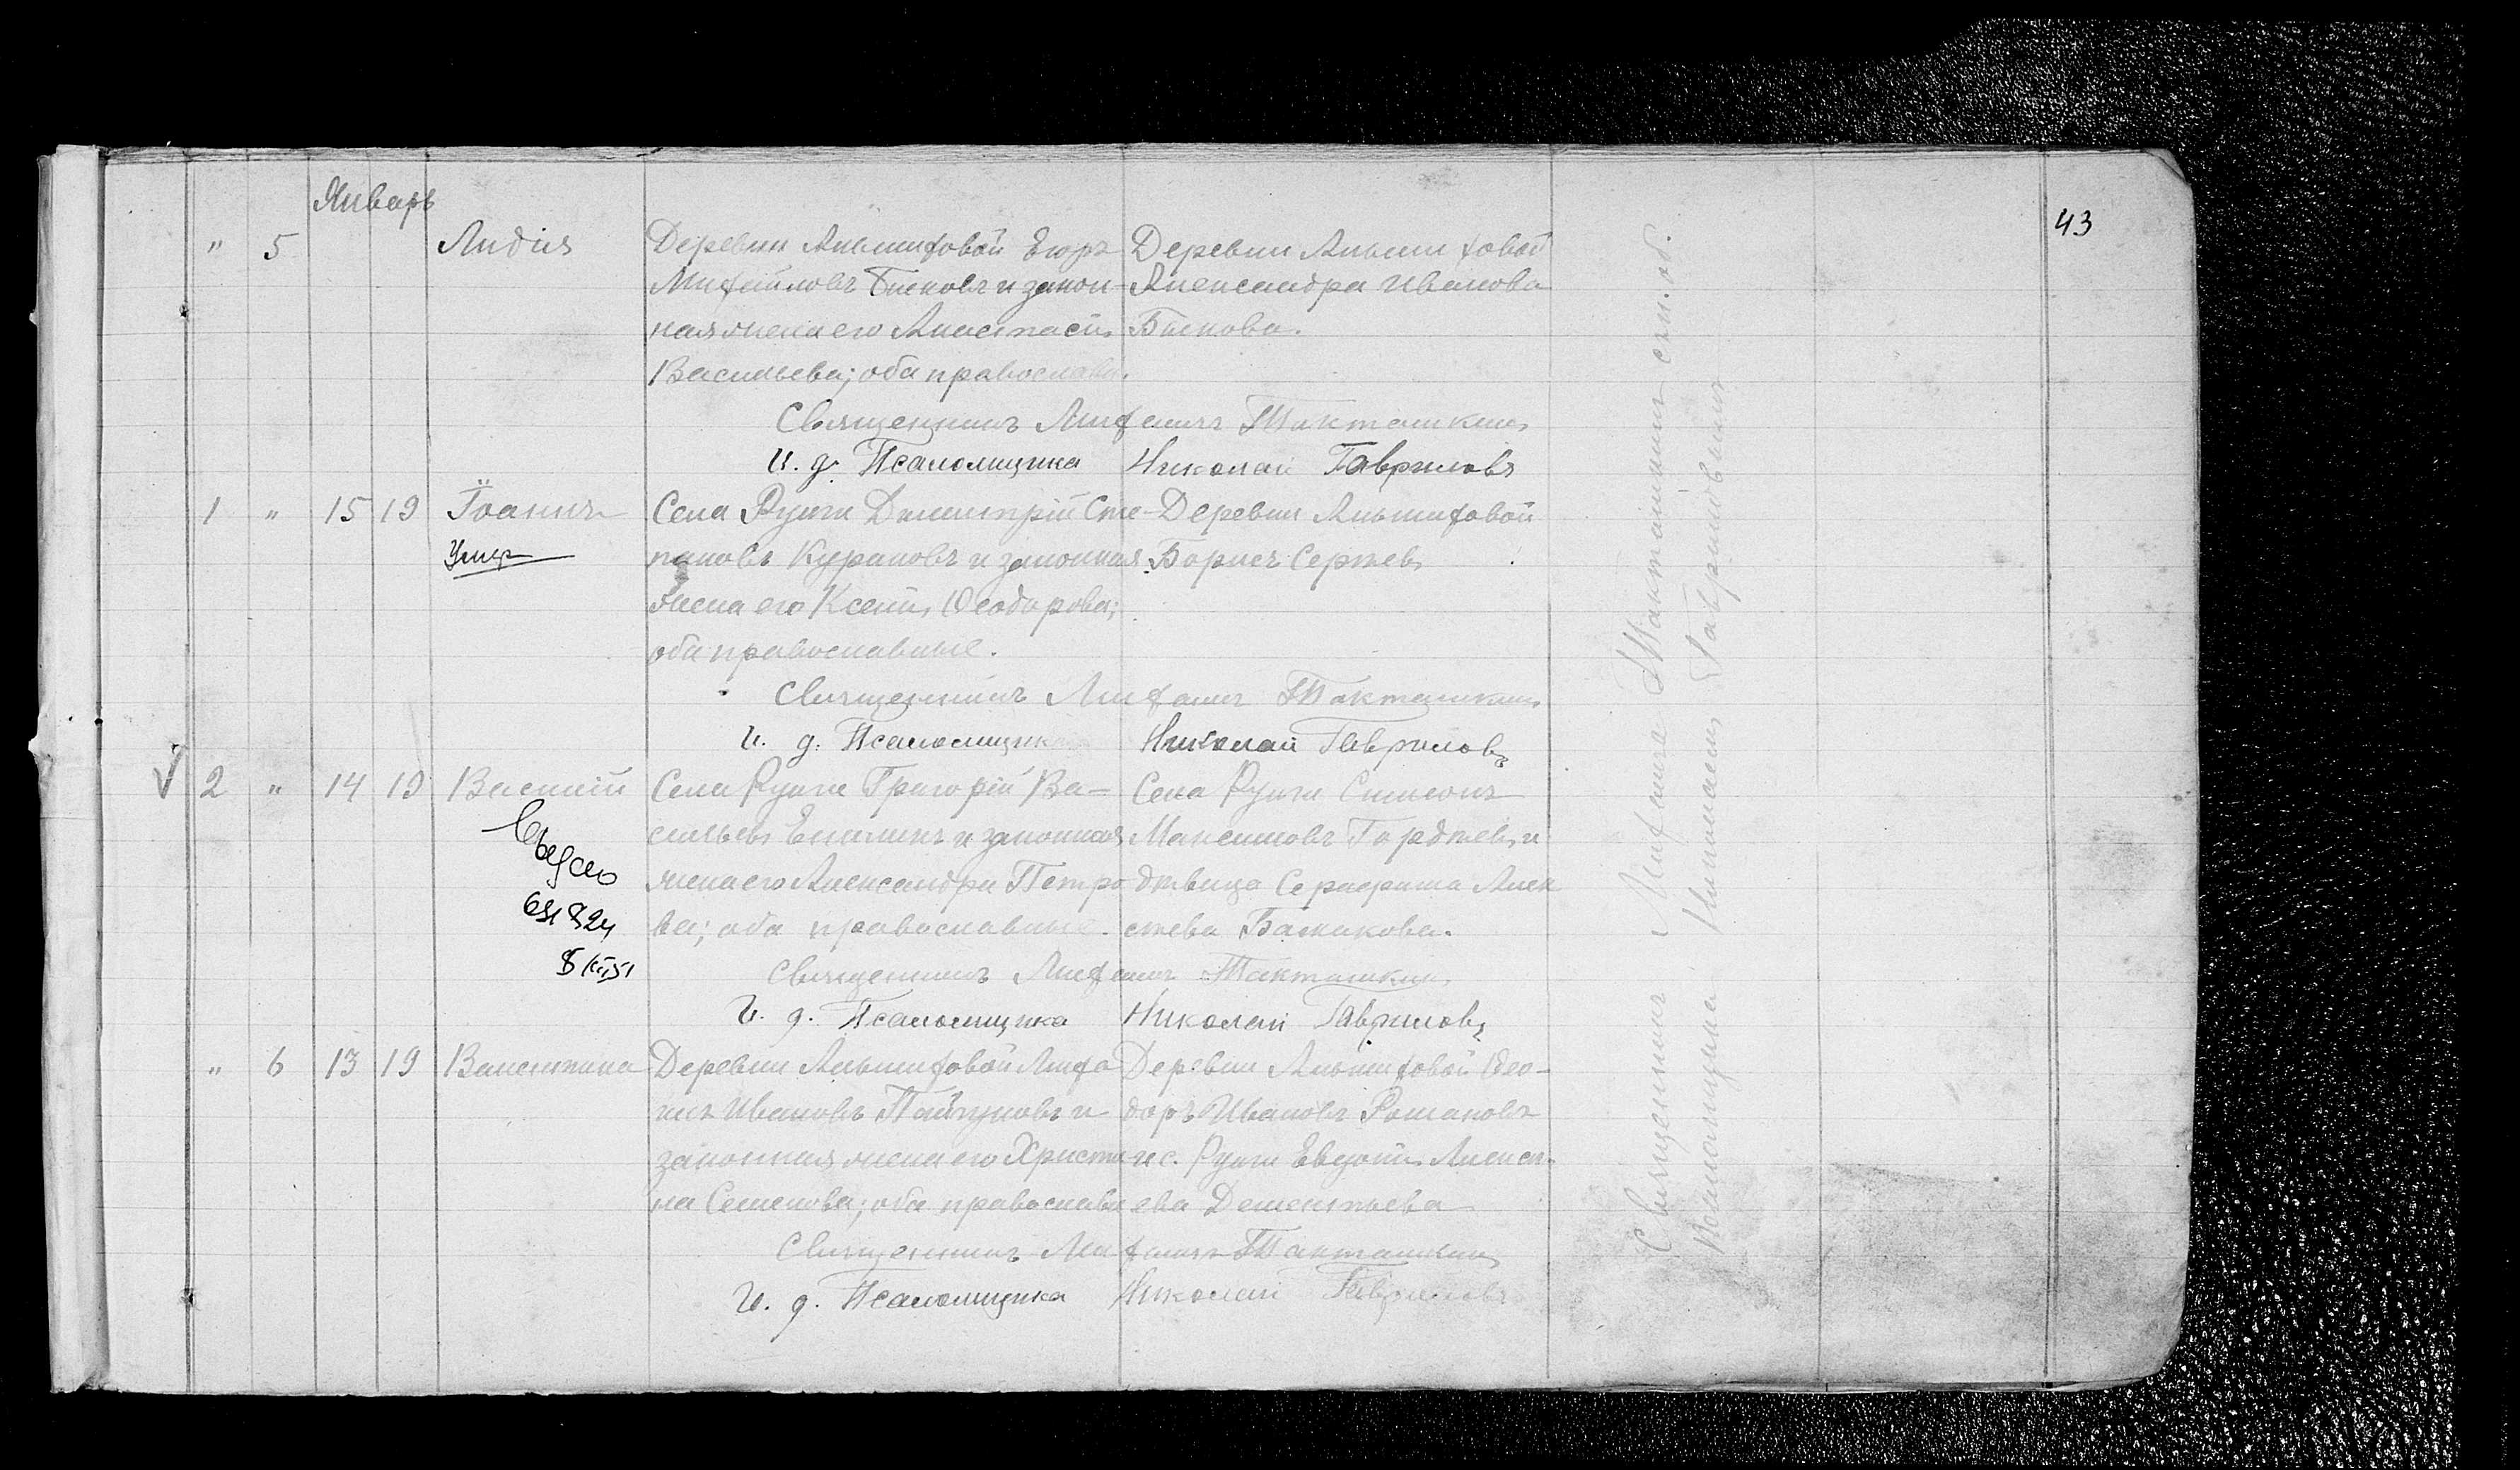 43
Январь
" 5 Лидія
Деревни Альшиховой Егоръ
Михайловъ Быковъ и закон-
ная жена его Анастасія
Васильева; оба православн.
Деревни Альшиховой
Александра Иванова
Быкова.
Священникъ Мифаилъ Такташкинъ
И. д. Псаломщика Николай Гавриловъ
1 " 15 19 Іоаннъ
Умеръ
Села Рунги Димитрій Сте-
пановъ Курановъ и законная
жена его Ксенія Ѳеодорова;
оба православные.
Деревни Альшиховой
Борисъ Сергѣевъ
Священникъ Такташкинъ
И. д. Псаломщика Николай Гавриловъ
2 " 14 19 Василій
Села Рунги Григорій Ва-
сильевъ и законная
жена его Александра Петро-
ва; оба православные.
Села Рунги Симеонъ
Максимовъ Гордѣевъ и
дѣвица Серафима Алек
сѣева Башкакова.
Священникъ Такташкинъ
И. д. Псаломщика Николай Гавриловъ
" 6 13 19 Валентина
Деревни Альшиховой
Ивановъ и
законная жена его Христи
на Семенова; оба православн
Деревни Альшиховой Ѳео-
доръ Ивановъ Романовъ
и с. Рунги Евдокія Алексѣ-
ева Дементьева
Священникъ Такташкинъ
И. д. Псаломщика Николай Гавриловъ
Священникъ Такташкинъ
Псаломщика Николай Гавриловъ